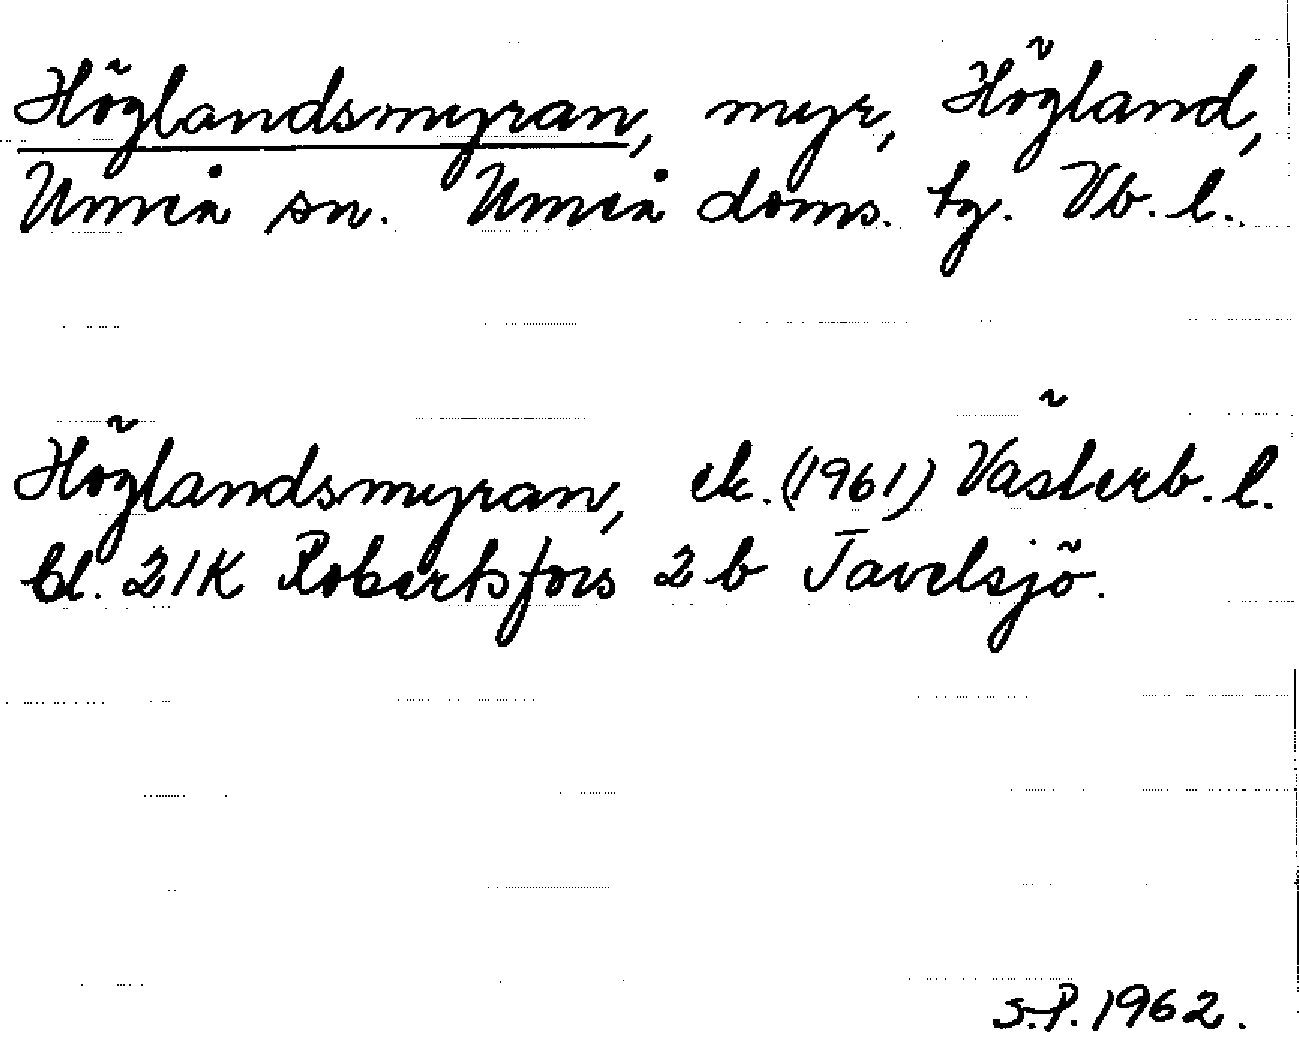 Höglandsmyran, myr, Högland,
Umeå sn. Umeå doms. tg. Vb. l.
Höglandsmyran, ek. (1961) Västerb. l.
bl. 21K Robertsfors 2 b Tavelsjö.
S.P. 1962.